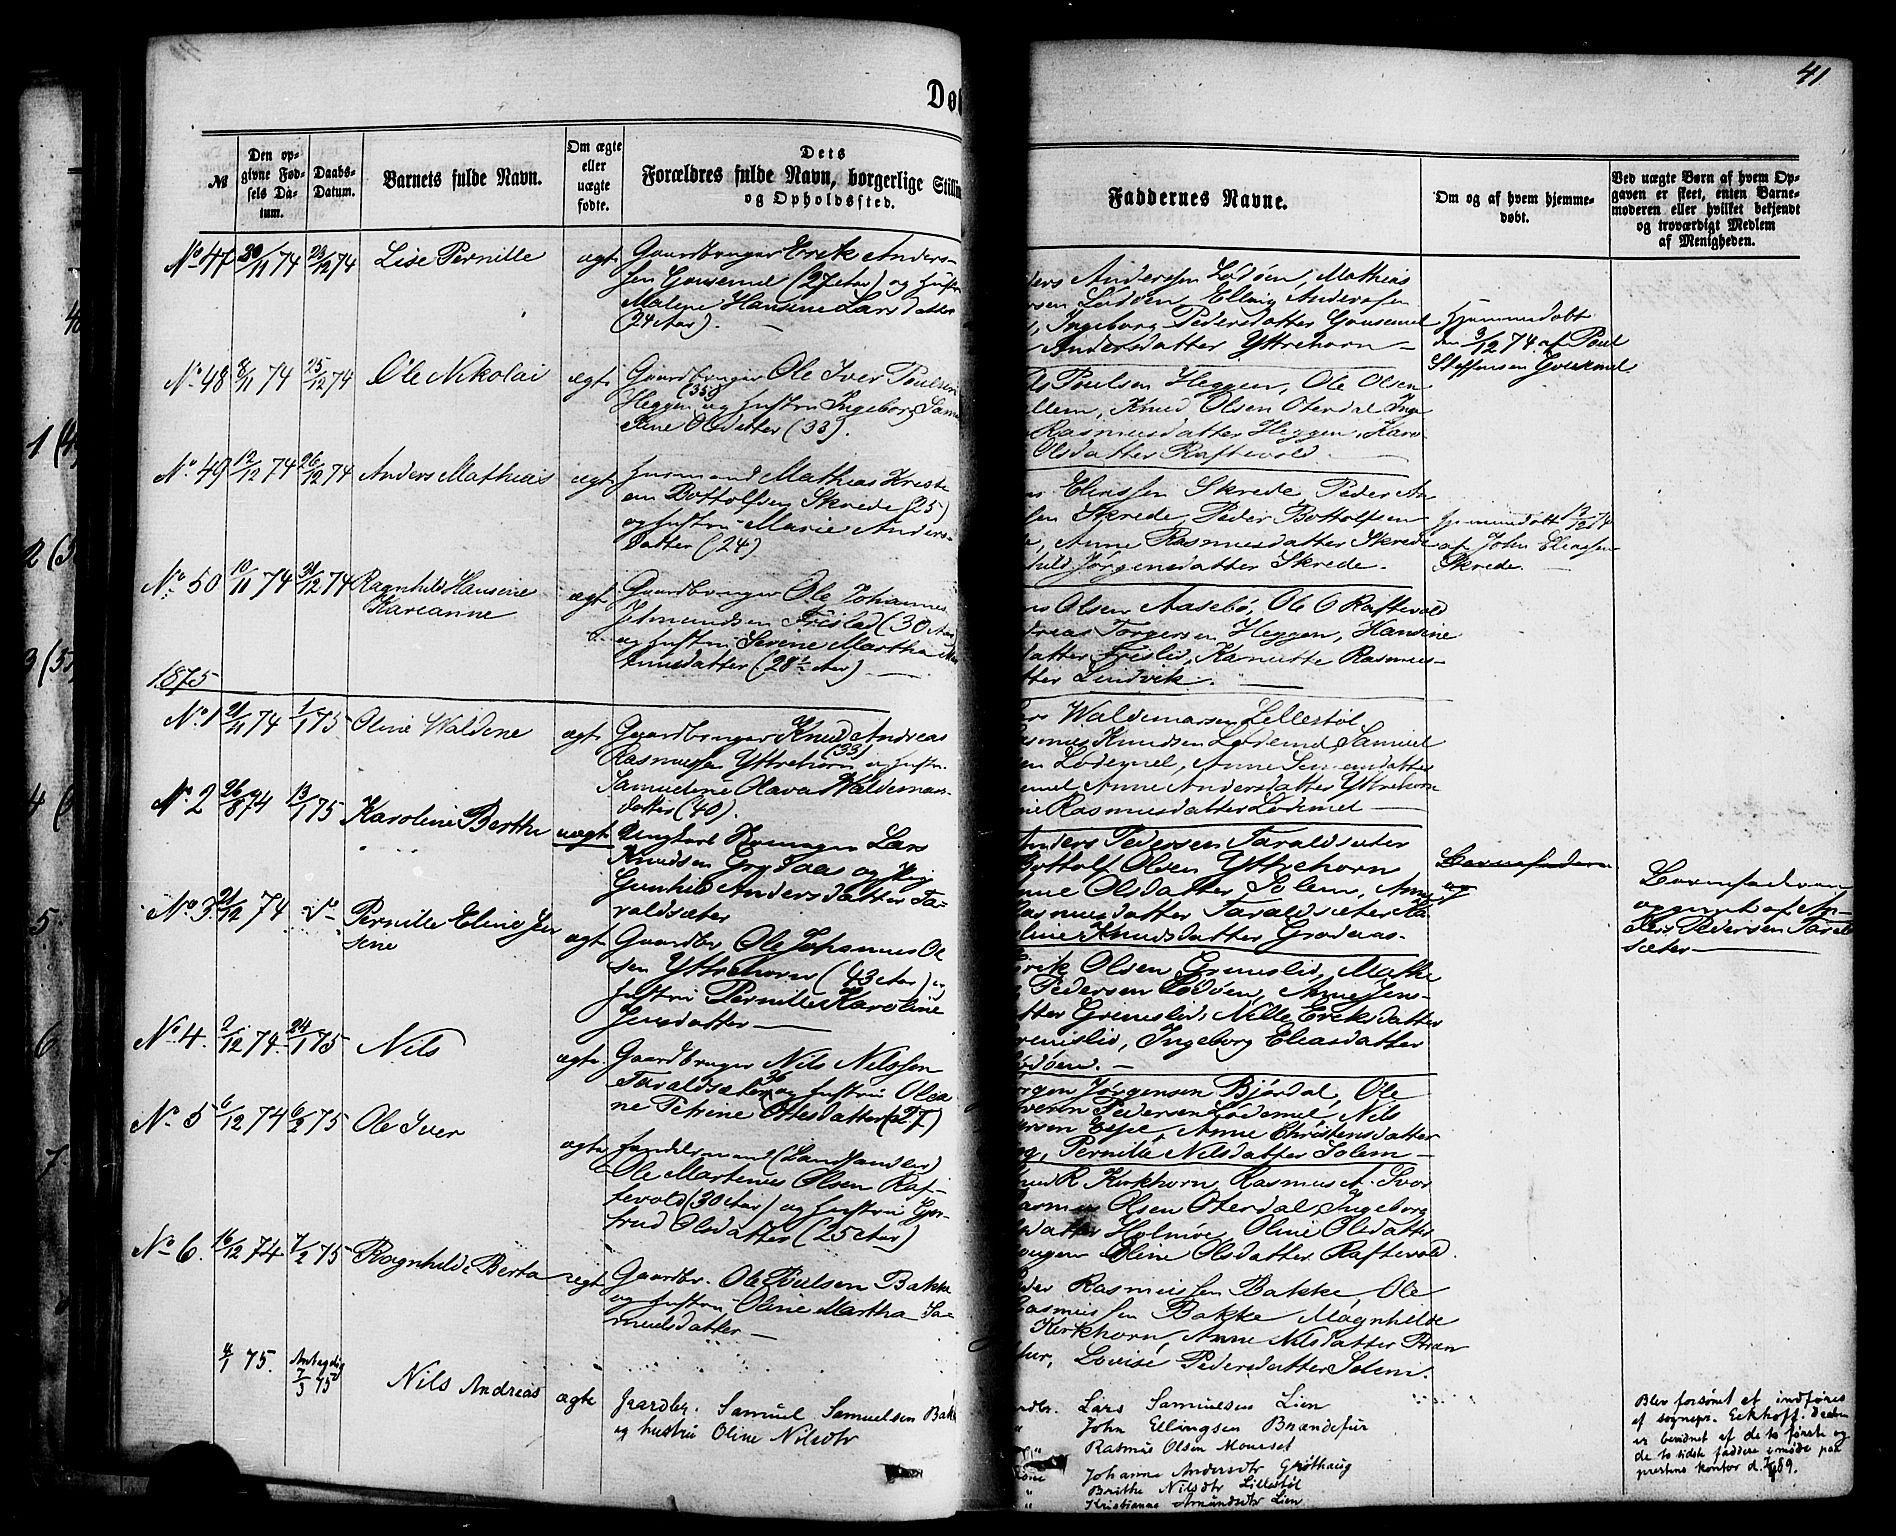 41
Dø
№
Den op-
givne Fød-
sels Da-
tum.
Daabs-
Datum.
Barnets fulde Navn.
Om ægte
eller
uægte
fødte.
Dets
Forældres fulde Navn, borgerlige Stillin
og Opholdssted.
Faddernes Navne.
Om og af hvem hjemme-
døbt.
Ved uægte Børn af hvem Op-
gaven er skeet, enten Barne-
moderen eller hvilket bekjendt
og troværdigt Medlem
af Menigheden.
No 47 30/11 74 23/12 74 Lise Pernille ægte
Gaardbruger Erik Anders-
sen Gausemel (27 Aar) og Hustr
Malene Hansine Larsdatter
(24 Aar).
Anderssen Lødøen, Mathias
Lødøen, Elling Anderssen
Ingeborg Pedersdatter Gausemel
Andersdatter Yttrehorn
Hjemmedøbt
den 3/12 74 af Poul
Steffensen Gausemel
No 48 8/11 74 25/12 74 Ole Nikolai ægte
Gaardbruger Ole Iver Poulsen
Heggen (35) og Hustru Ingeborg Sam
Oline Olsdatter (33).
Poulsen Heggen, Ole Olsen
Knud Olsen Oterdal, Inge
Rasmusdatter Heggen, Karo
Olsdatter Raftevold
No 49 12/12 74 26/12 74 Anders Mathias ægte
Husmand Mathias Kristi
an Bottolfsen Skrede (25)
og Hustru Marie Anders-
datter (24)
Eliassen Skrede, Peder An
sen Skrede, Peder Bottolfsen
Anne Rasmusdatter Skrede
hild Jørgensdatter Skrede.
Hjemmedøbt 12/12 74
af John Eliassen
Skrede.
No 50 10/11 74 31/12 74 Ragnhild Hansine
Karianne ægte
Gaardbruger Ole Johannes
Jetmundsen Frislid (30 Aar)
og Hustru Serine Martha
(28½ Aar)
Olsen Aasebø, Ole O Raftevold
dreas Torgersen Heggen, Hansine
datter Frislid, Karnitte Rasmus-
tter Lindvik.
1875
No 1 21/11 74 1/1 75 Oline Waldine ægte
Gaardbruger Knud Andreas
Rasmussen Yttrehorn (33) og Hustru
Samueline Olava Waldemars-
datter (40).
Waldemarsen Lillestøl
Knudsen Lødemel, Samuel
Lødemel, Anne Simensdatter
Anne Andersdatter Yttrehorn
Rasmusdatter Lødemel
No 2 26/8 74 13/1 75 Karoline Berthe uægte
Ungkarl Lars
Knudsen Grodaas og Pig
Gunhild Andersdatter Ta-
raldsæter
Anders Pedersen Taraldsæter
Bottolf Olsen Yttrehorn
Anne Olsdatter Solem, Anne
Rasmusdatter Taraldsæter Ka
roline Knudsdatter Grodaas.
Barnefaderen
og
Barnefaderen
opgivet af An-
ders Pedersen Tarald
sæter
No 3 21/12 74 do Pernille Eline Jen
sine ægte
Gaardbr Ole Johannes Ol
sen Yttrehorn (43 Aar) og
Hustru Pernille Karoline
Jensdatter
Erik Olsen Greneslid, Mathe
Pedersen Lødøen, Anne Jens-
datter Greneslid, Nille Eriksdatter
Greneslid, Ingeborg Eliasdatter
Lødøen.
No 4. 2/12 74. 24/1 75 Nils ægte
Gaardbruger Nils Nilssen
Taraldsæter 36 og Hustru Olea
ne Petrine Ottesdatter (27)
Jørgen Jørgensen Bjørdal, Ole
Pedersen Lødemel, Nils
Espe, Anne Christensdatter
Pernille Nilsdatter Solem
No 5 6/12 74 6/2 75 Ole Iver ægte
Handelsmand (Landhandler)
Ole Martinus Olsen Raf-
tevold (30 Aar) og Hustru Ger-
trud Olsdatter (25 Aar)
Knud R Kirkhorn, Rasmus A. Svor
Rasmus Olsen Oterdal, Ingeborg
datter Holmøi, Oline Olsdatter
Haugen Oline Olsdatter Raftevold.
No 6. 16/12 74 7/2 75 Ragnhilde Berta ægte
Gaardbr. Ole Poulsen Bakke
og Hustru Oline Martha Sa-
muelsdatter
Peder Rasmussen Bakke Ole
Rasmussen Bakke Magnhilde
Kirkhorn, Anne Nilsdatter Bræn
defur, Lovise Pedersdatter Solem.
4/1 75. Antagelig
7/3 75 Nils Andreas ægte
Gaardbr. Samuel Samuelsen Bakk
og hustru Oline Nilsdtr
Gaardbr. Lars Samuelsen Lien
" John Ellingsen Brændefur
" Rasmus Olsen Mouset
Johanne Andersdtr Grøthaug
" Brithe Nilsdtr Lillestøl
" Kristianne Amundsdtr Lien
Blev forsømt at indføres
af sognepr. Eckhoff. Daaben
er bevidnet af de to første og
de to sidste faddere i møde paa
prestens kontor d. 7/4 89.
1 (4
2 (3
3 (3
4 (
5
6
7